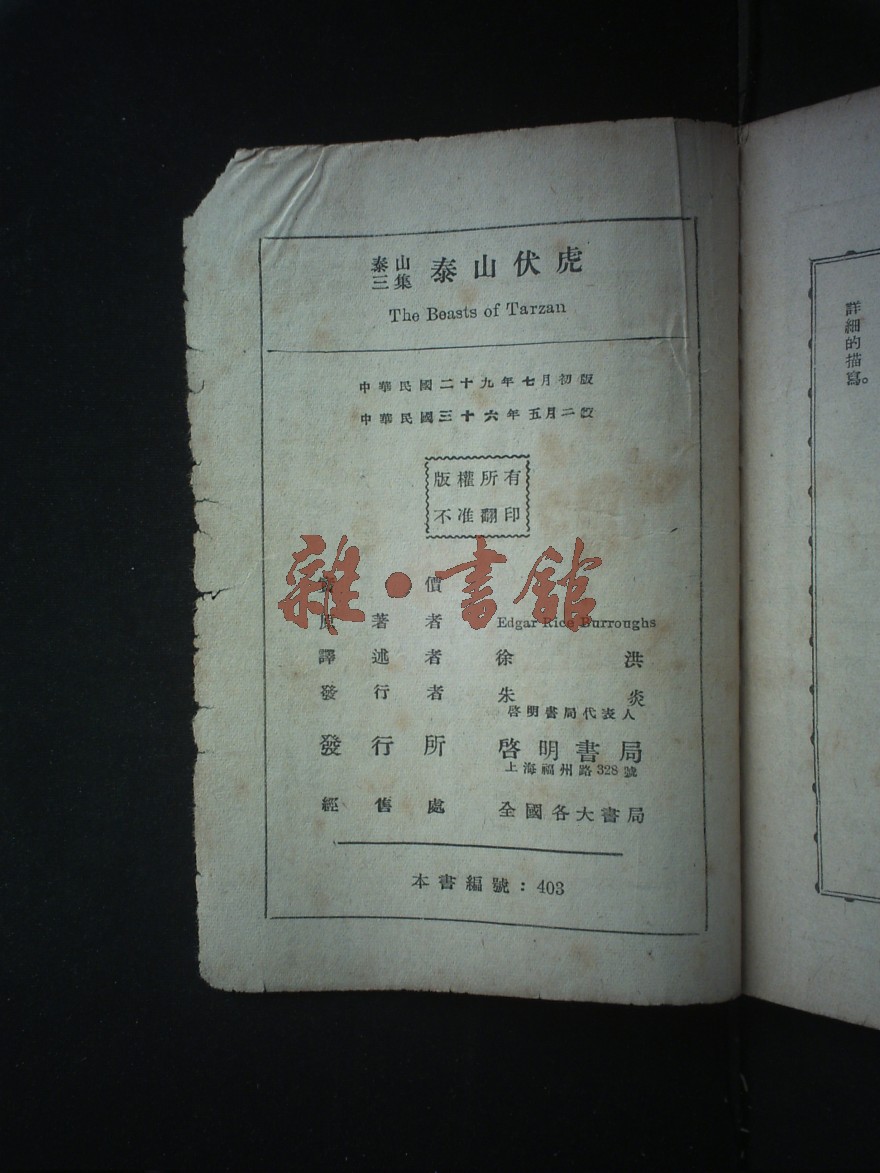 泰山三集 泰山伏虎
The Beasts of Tarzan
中華民國二十九年七月初版
中華民國三十六年五月二版
版權所有
不准翻印
價
原著者 Edgar Rice Burroughs
譯述者 徐洪
發行者 朱炎
啓明書局代表人
發行所 啓明書局
上海福州路328號
經售處 全國各大書局
本書編號：403
詳細的描寫。
雜·書館